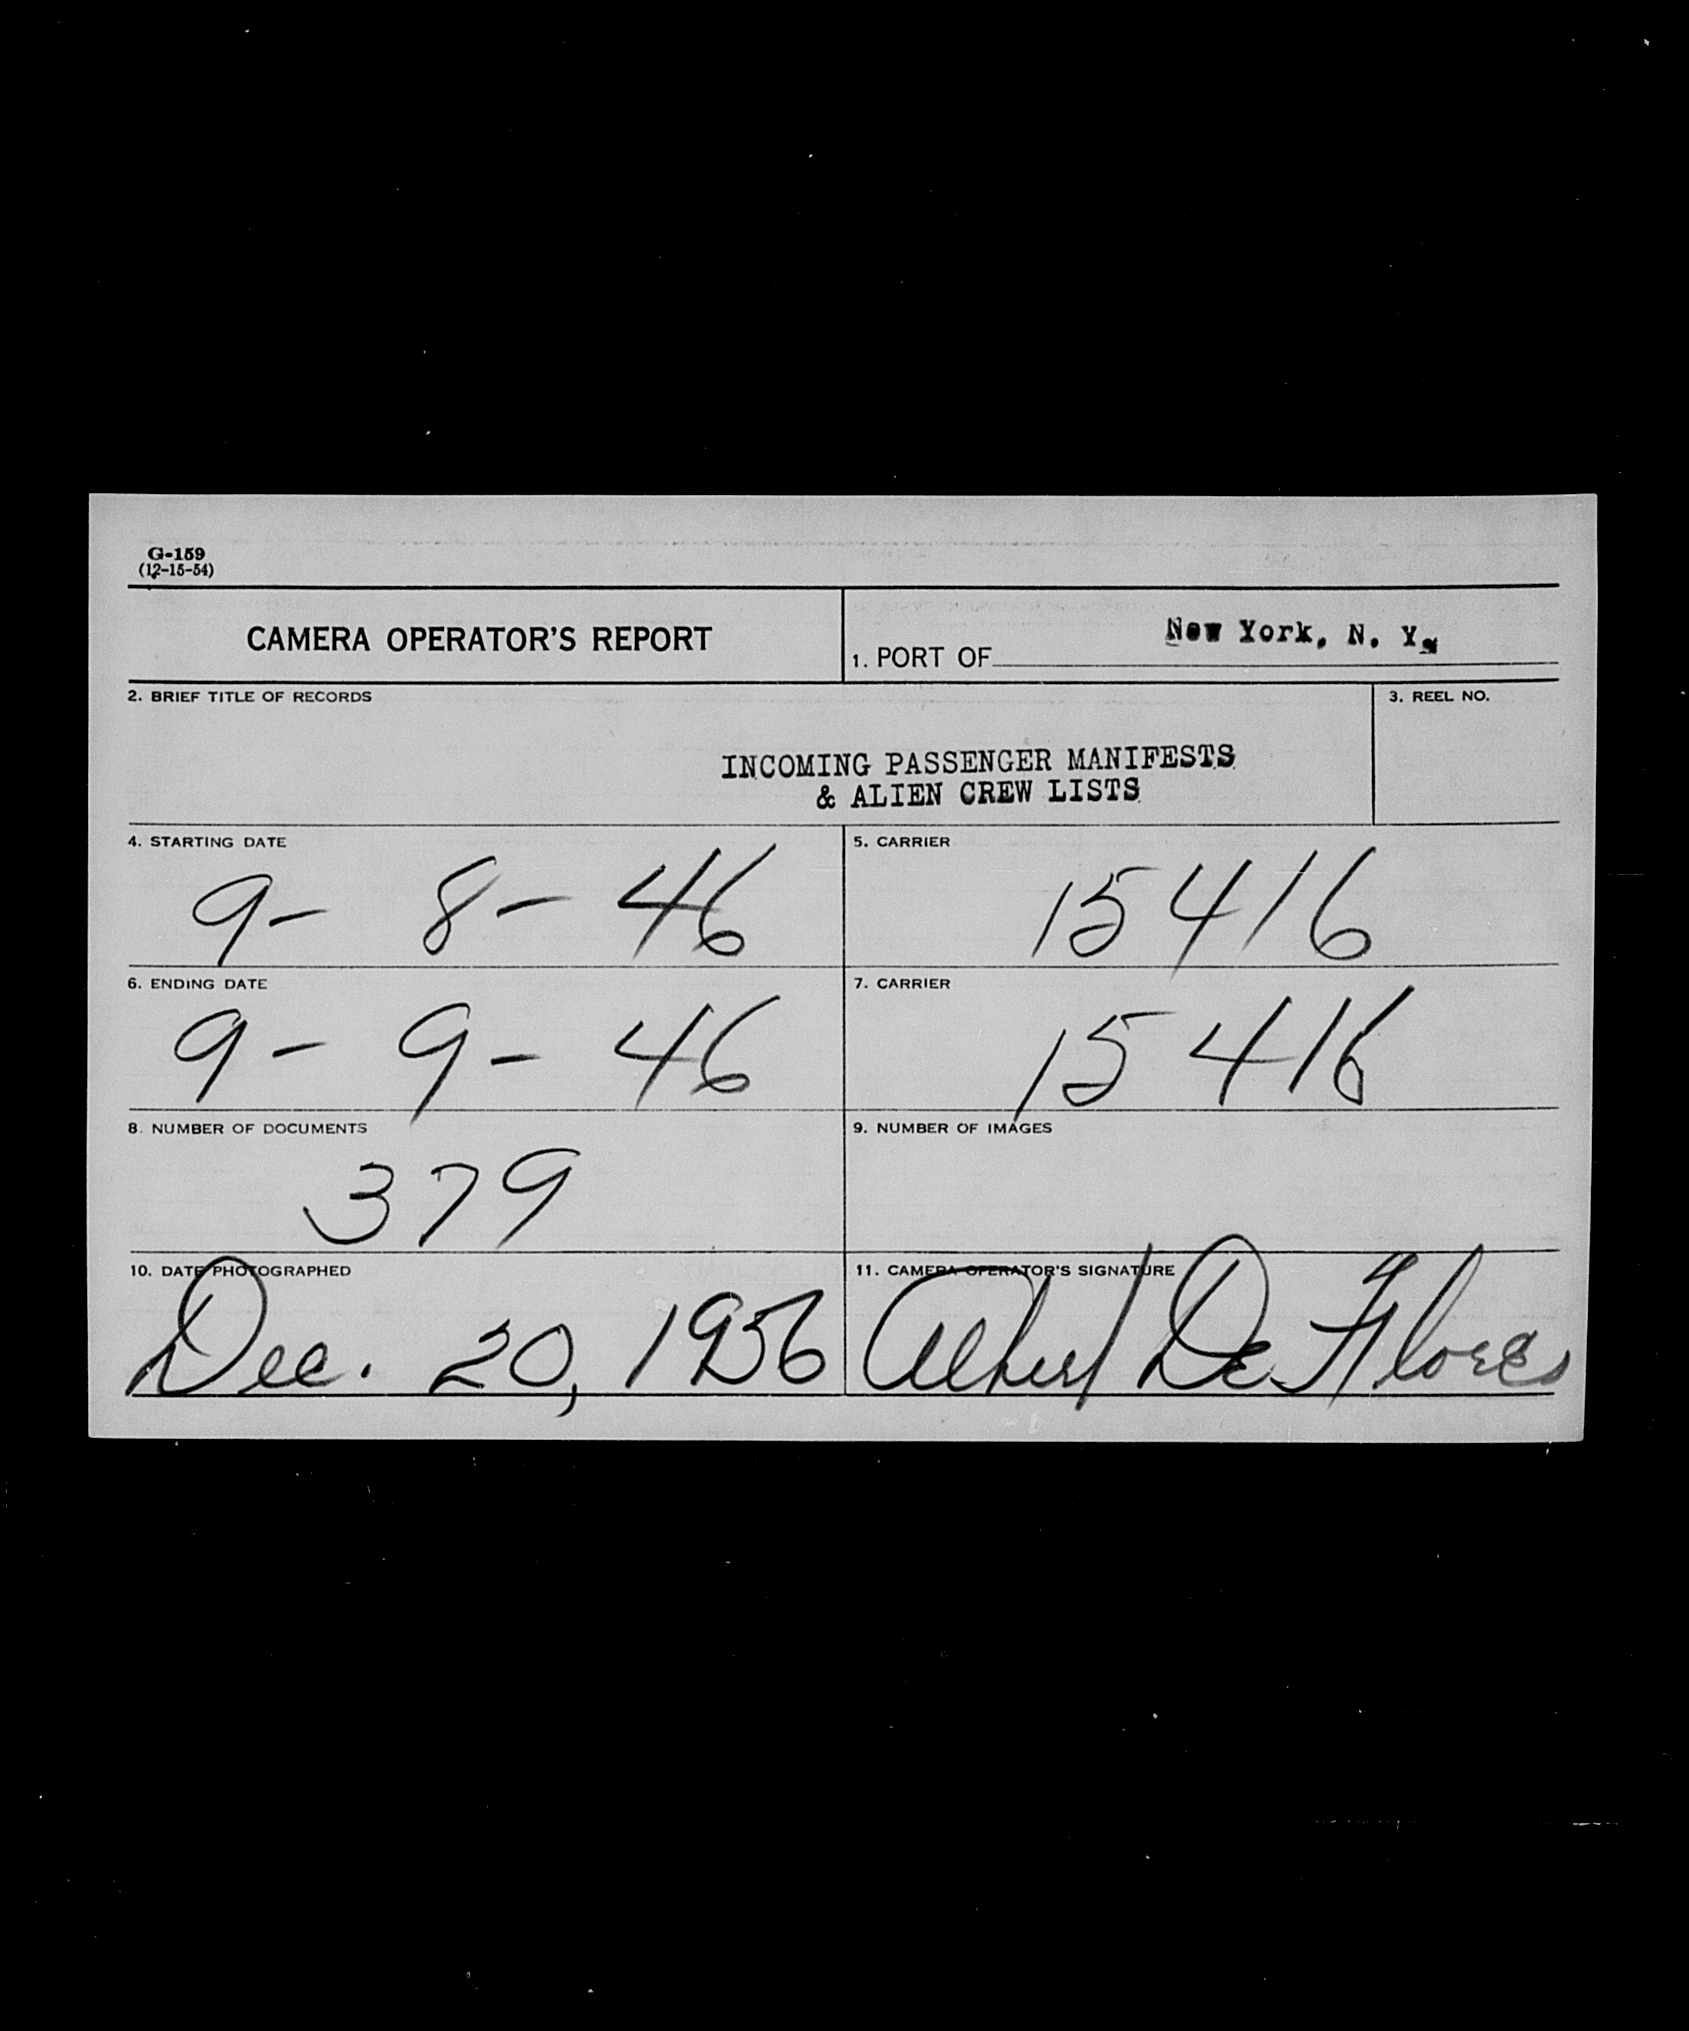 G-159
(12-15-54)
CAMERA OPERATOR'S REPORT
1. PORT OF New York, N. Y.
2. BRIEF TITLE OF RECORDS
INCOMING PASSENGER MANIFESTS
& ALIEN CREW LISTS
3. REEL NO.
4. STARTING DATE
9- 8- 46
5. CARRIER
15416
6. ENDING DATE
9- 9- 46
7. CARRIER
15416
8. NUMBER OF DOCUMENTS
379
9. NUMBER OF IMAGES
10. DATE PHOTOGRAPHED
Dec. 20, 1956
11. CAMERA OPERATOR'S SIGNATURE
Albert De Flores